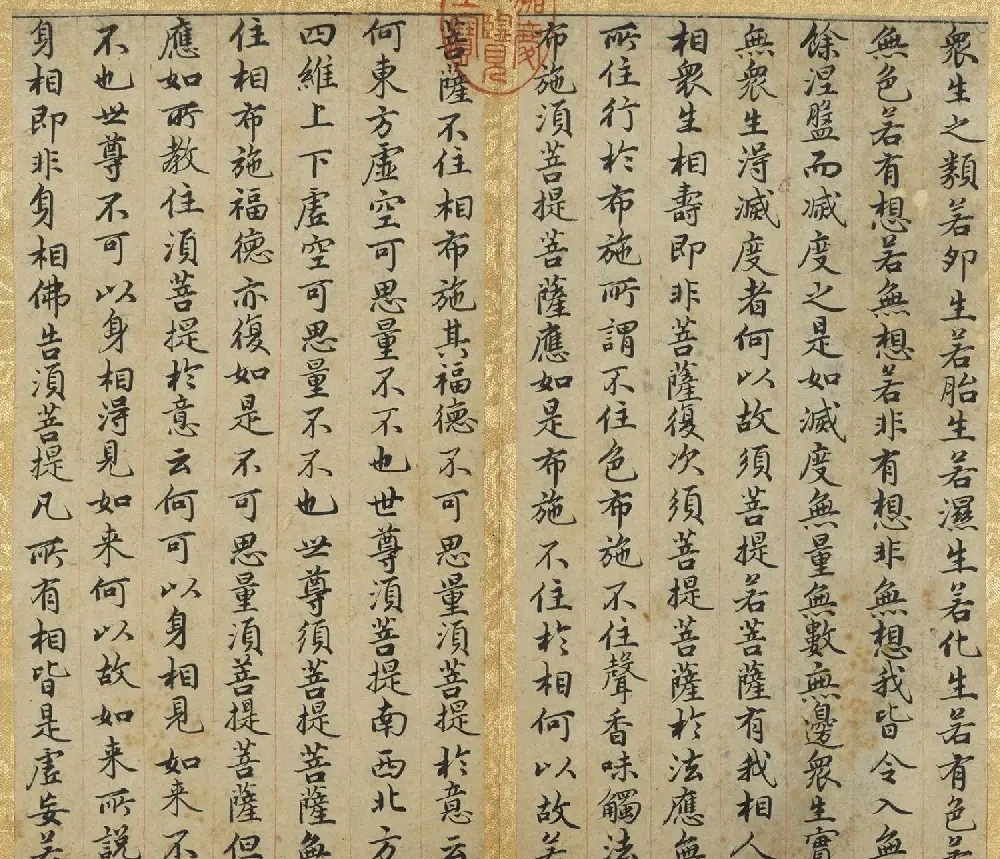 衆生之類若卵生若胎生若濕生若化生若有色若
無色若有想若無想若非有想非無想我皆令入無
餘涅盤而滅度之是如滅度無量無數無邊衆生實
無衆生得滅度者何以故須菩提若菩薩有我相人
相衆生相壽即非菩薩復次須菩提菩薩於法應無
所住行於布施所謂不住色布施不住聲香味觸法
布施須菩提菩薩應如是布施不住於相何以故若
菩薩不住相布施其福德不可思量須菩提於意云
何東方虛空可思量不不也世尊須菩提南西北方
四維上下虛空可思量不不也世尊須菩提菩薩無
住相布施福德亦復如是不可思量須菩提菩薩但
應如所教住須菩提於意云何可以身相見如来不
不也世尊不可以身相得見如来何以故如来所說
身相即非身相佛告須菩提凡所有相皆是虛妄若